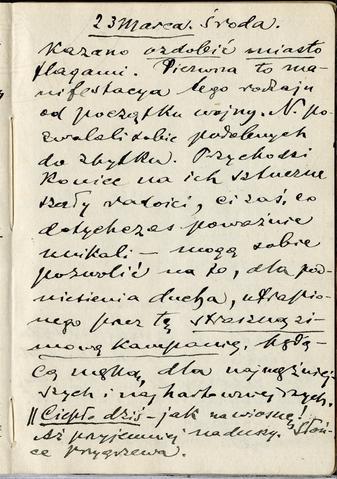 23 Marca. Środa.
Kazano ozdobić miasto
flagami. Pierwsza to ma-
nifestacya tego rodzaju
od początku wojny. N. po-
zwalali sobie podobnych
do zbytku. Przychodzi
koniec na ich sztuczne
szały radości, ci zaś, co
dotychczas poważnie
milkali — mogą sobie
pozwolić na to, dla pod-
niesienia ducha, utrapio-
nego przez tę straszną zi-
mową kampanię, będą-
cą męką, dla najmężniej-
szych i najhartowniejszych.
|| Ciepło dziś – jak na wiosnę!
Aż przyjemniej na duszy. Słoń-
ce przygrzewa.